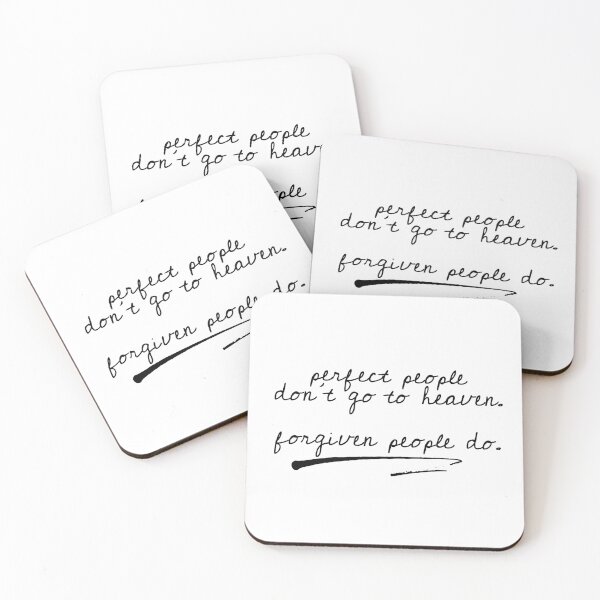 perfect people
don't go to
perfect people
don't go to heaven.
forgiven people do.
perfect people
don't go to heaven.
forgiven people do.
perfect people
don't go to heaven.
forgiven people do.